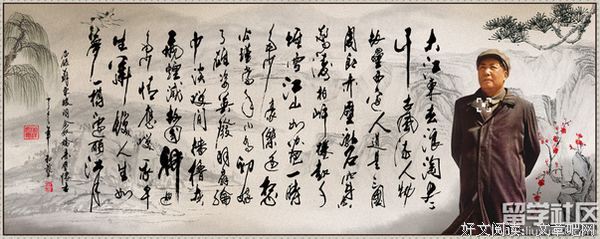 大江東去浪淘盡
千古風流人物
故壘西邊人道是三國
周郎赤壁亂石穿空
驚濤拍岸捲起千
堆雪江山如畫一時
多少豪傑遙想
公瑾當年小喬初嫁
了雄姿英發羽扇綸
巾談笑間檣櫓灰
飛煙滅故國神遊
多情應笑我早
生華髮人生如
夢一樽還酹江月
留学社区
好文阅读：文章吧网